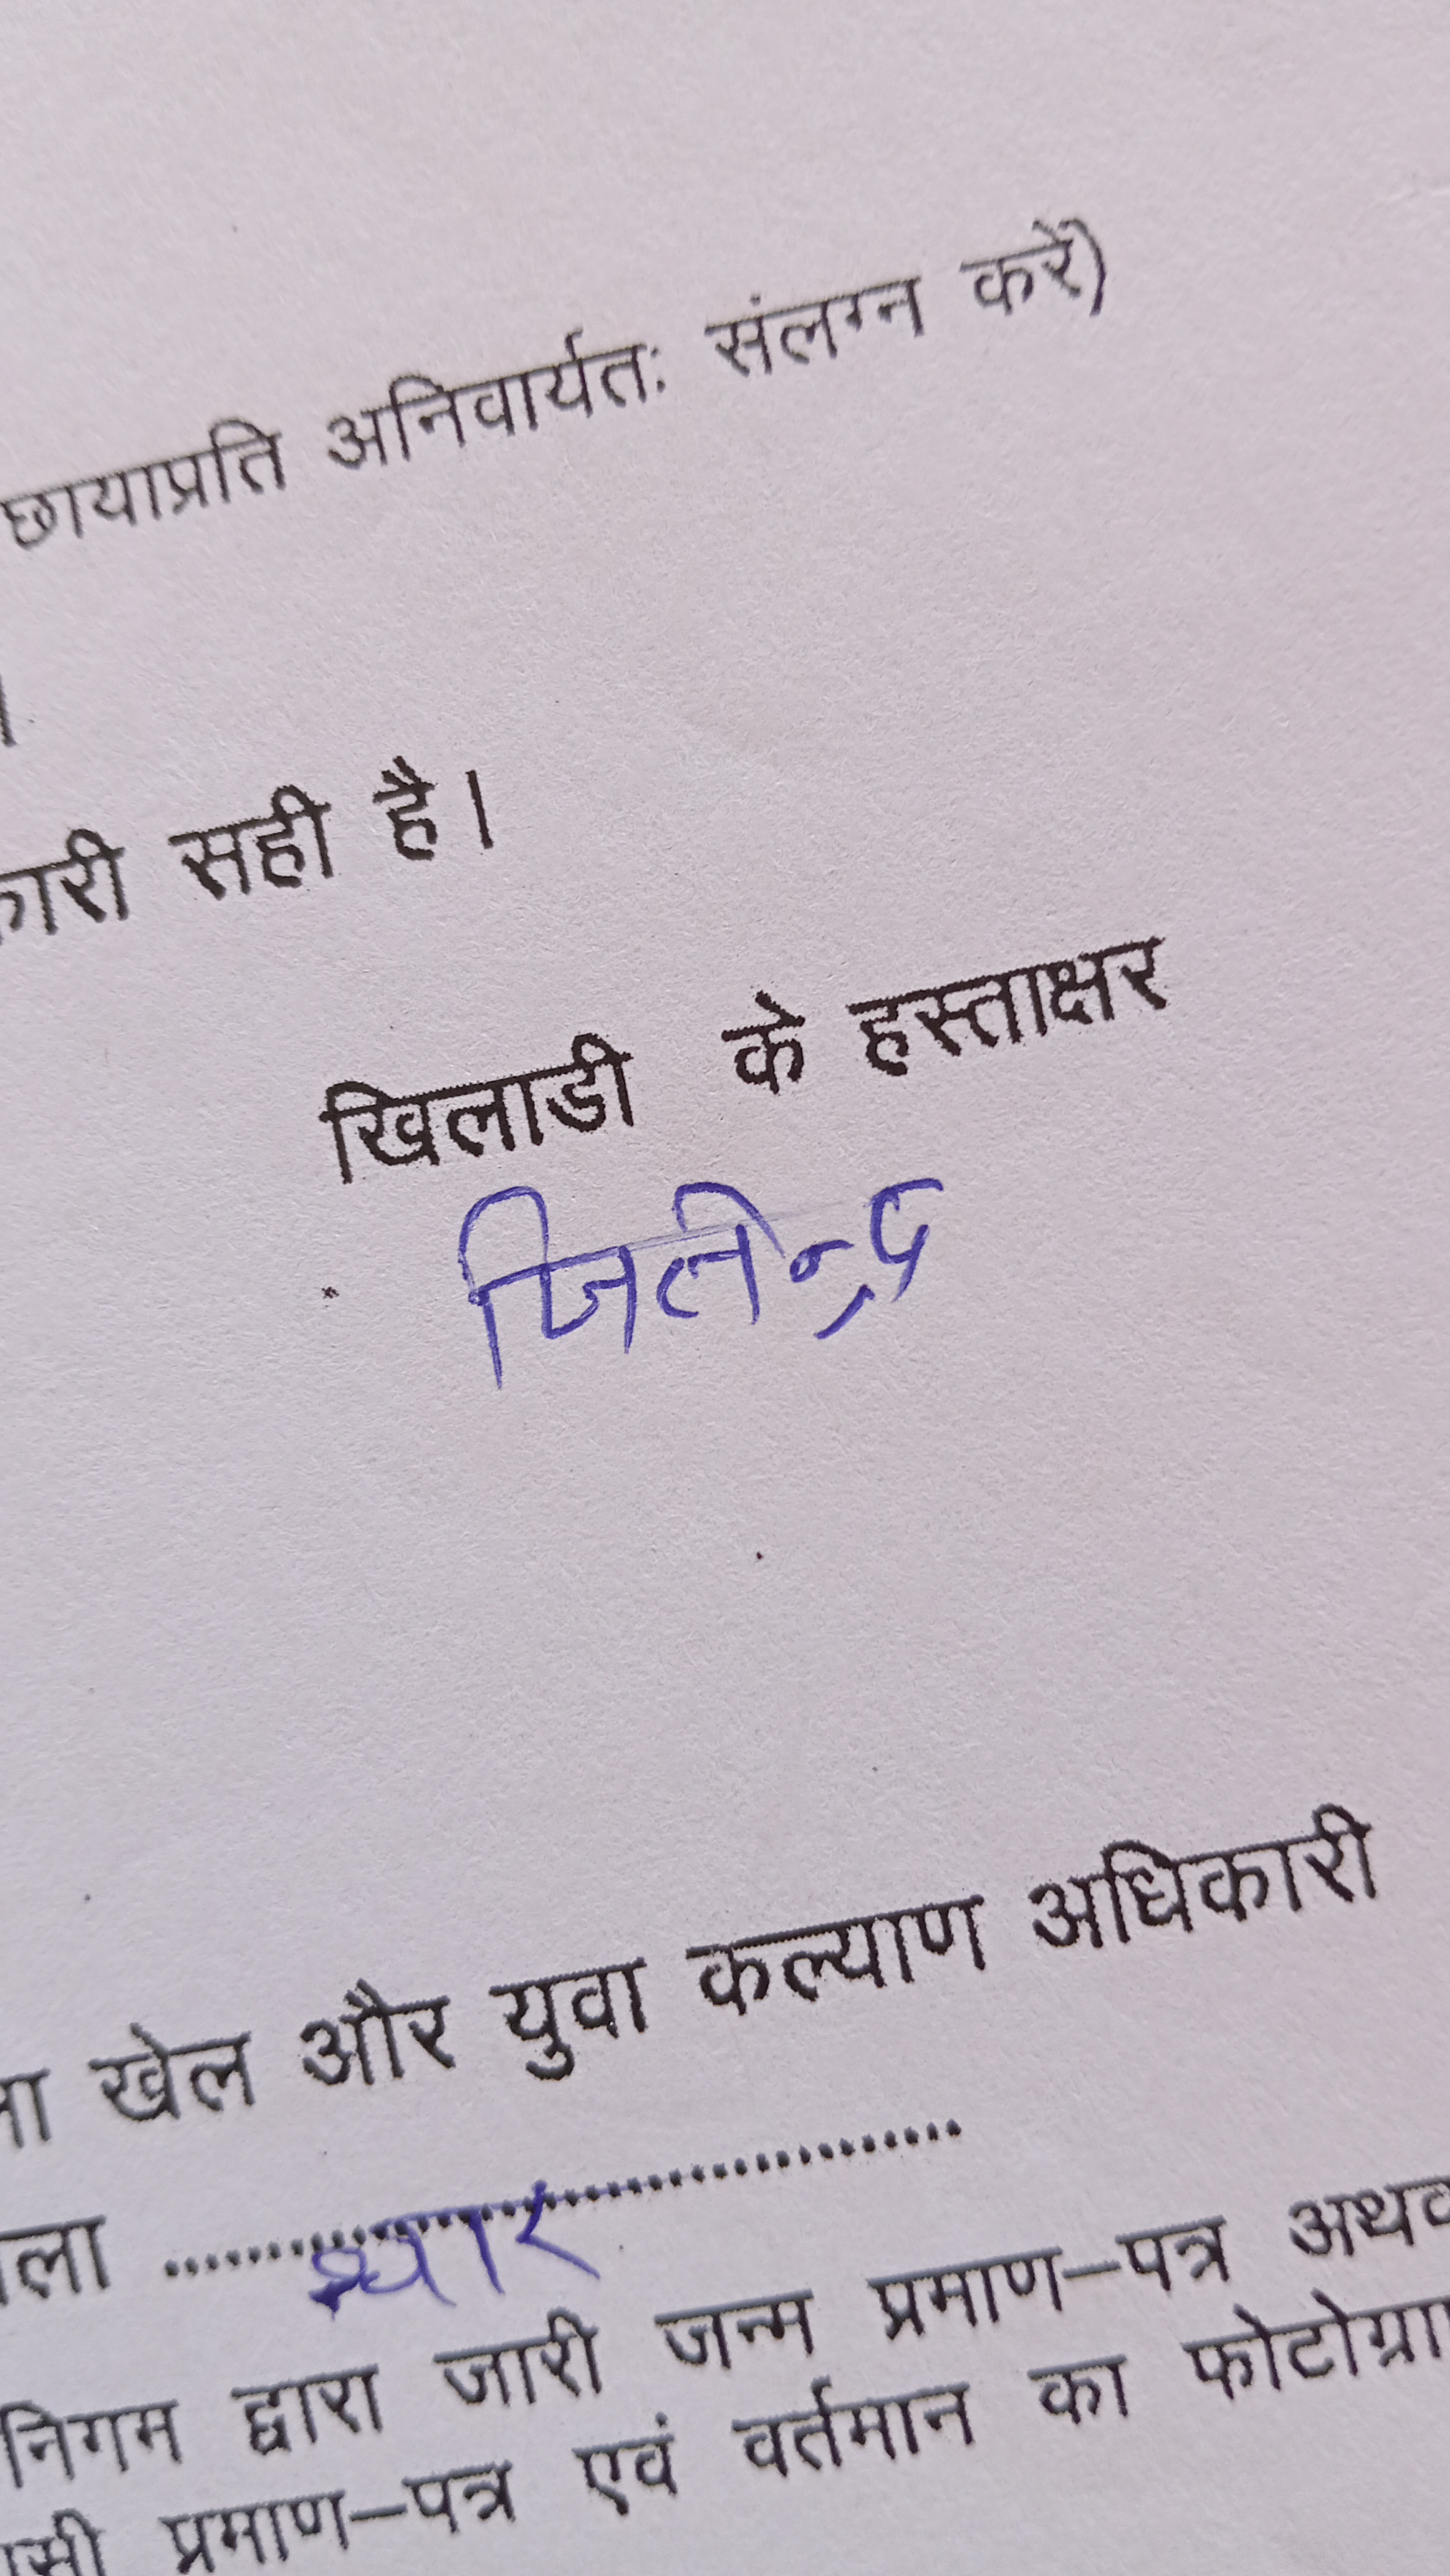 छायाप्रति अनिवार्यतः संलग्न करें)
।
कारी सही है।
खिलाडी के हस्ताक्षर
जितेन्द्र
ला खेल और युवा कल्याण अधिकारी
ला ........धार........
निगम द्वारा जारी जन्म प्रमाण–पत्र अथव
सी प्रमाण–पत्र एवं वर्तमान का फोटोग्रा